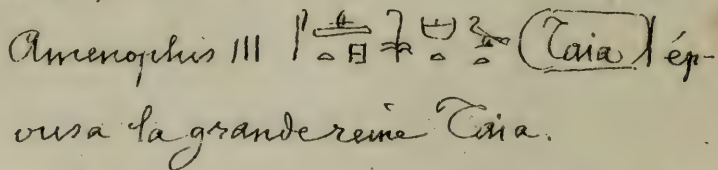 Amenophis III (Taia) ép-
ousa la grande reine Taia.